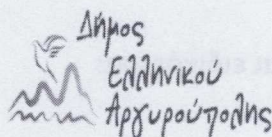 Δήμος
Ελληνικού
Αργυρούπολης